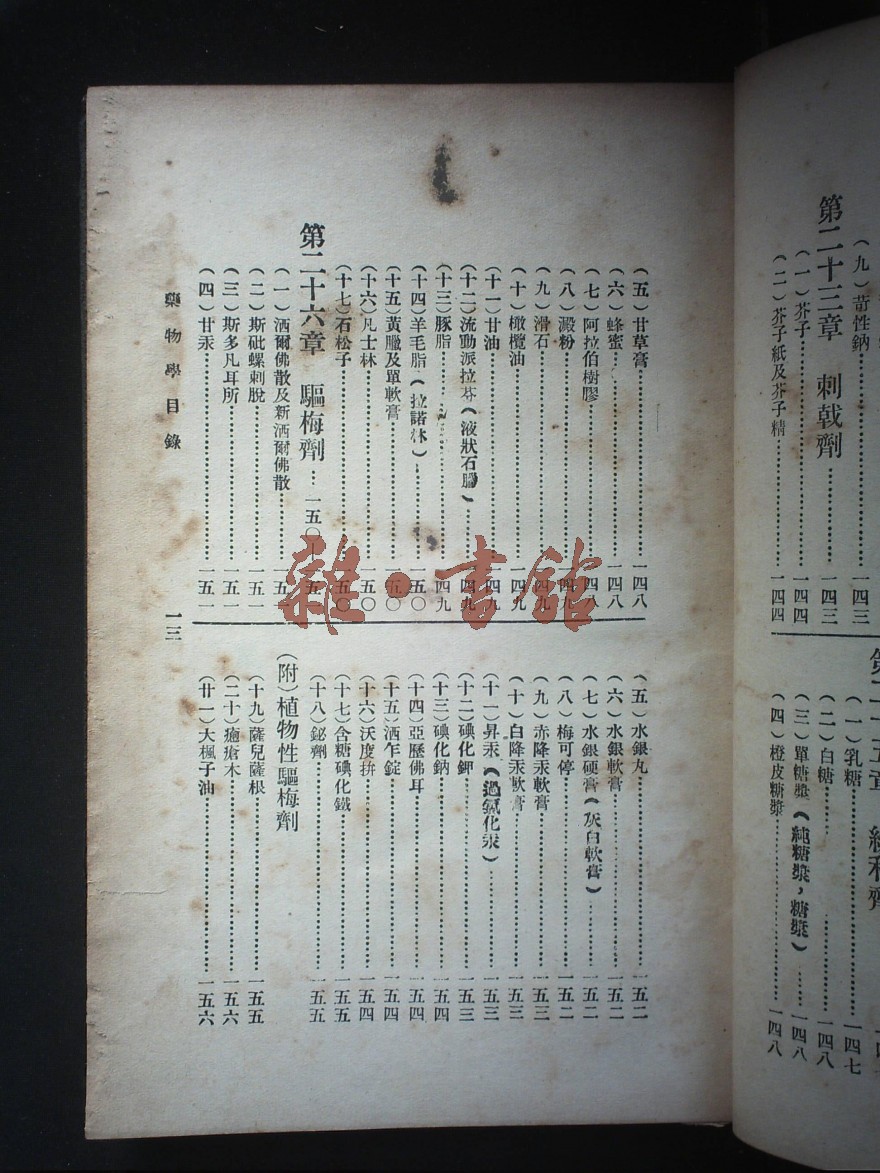 第二十三章　刺戟劑
（一）芥子……一四三
（二）芥子紙及芥子精……一四四
（九）苛性鈉……一四三
（一）乳糖……一四七
（二）白糖……一四八
（三）單糖漿（純糖漿，糖漿）……一四八
（四）橙皮糖漿……一四八
（五）甘草膏……一四八
（六）蜂蜜……一四八
（七）阿拉伯樹膠……一四八
（八）澱粉……一四九
（九）滑石……一四九
（十）橄欖油……一四九
（十一）甘油……一四九
（十二）流動派拉芬（液狀石臘）……一四九
（十三）豚脂……一四九
（十四）羊毛脂（拉諾林）……一五〇
（十五）黃臘及單軟膏……一五〇
（十六）凡士林……一五〇
（十七）石松子……一五〇
第二十六章　驅梅劑…一五〇
（一）洒爾佛散及新洒爾佛散……一五一
（二）斯砒螺剌脫……一五一
（三）斯多凡耳所……一五一
（四）甘汞……一五一
（五）水銀丸……一五二
（六）水銀軟膏……一五二
（七）水銀硬膏（灰白軟膏）……一五二
（八）梅可停……一五二
（九）赤降汞軟膏……一五三
（十）白降汞軟膏……一五三
（十一）昇汞（過氯化汞）……一五三
（十二）碘化鉀……一五三
（十三）碘化鈉……一五四
（十四）亞歷佛耳……一五四
（十五）洒乍錠……一五四
（十六）沃度拚……一五四
（十七）含糖碘化鐵……一五五
（十八）鉍劑……一五五
（附）植物性驅梅劑
（十九）薩兒薩根……一五五
（二十）癒瘡木……一五六
（廿一）大楓子油……一五六
藥物學目錄
一三
雜·書館